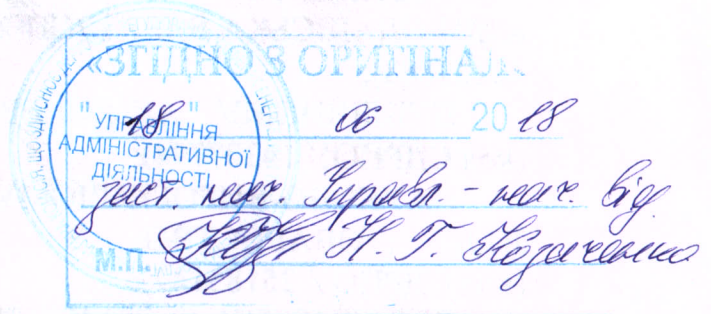 «ЗГІДНО З ОРИГІНАЛ
"18" 06 2018
УПРАВЛІННЯ
АДМІНІСТРАТИВНОЇ
ДІЯЛЬНОСТІ
заст. нач. Управл. - нач. від.
М.П. Н. Г. Козаченко